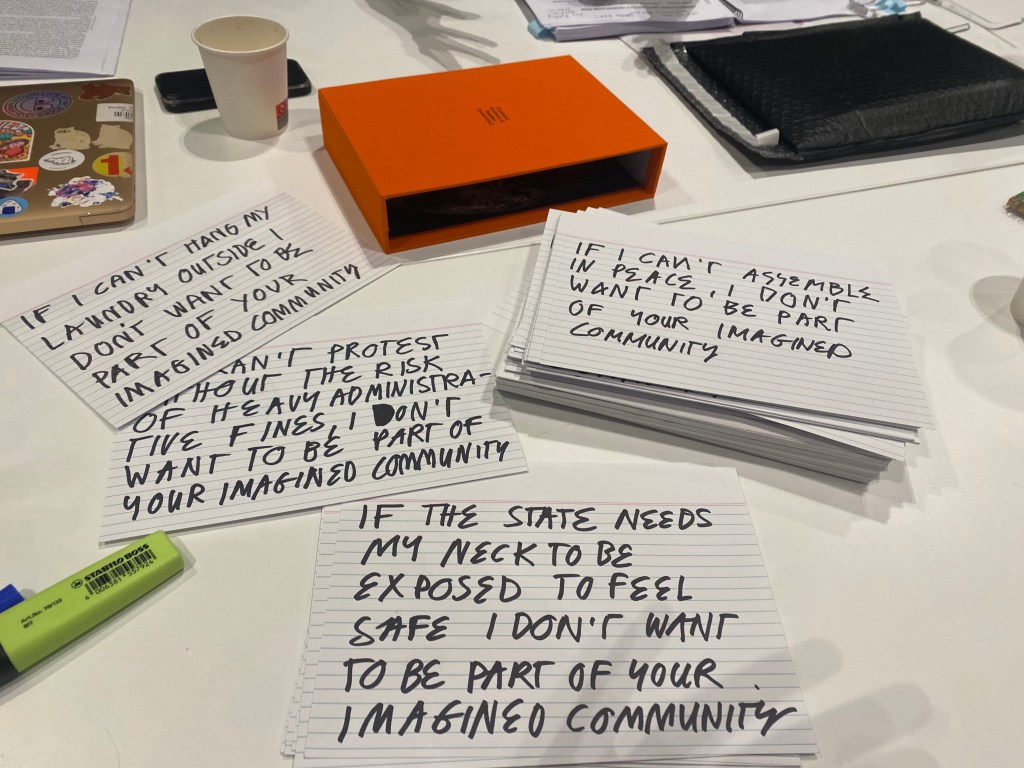 IF I CAN'T HANG MY
LAUNDRY OUTSIDE I
DON'T WANT TO BE
PART OF YOUR
IMAGINED COMMUNITY
CAN'T PROTEST
THE RISK
OF HEAVY ADMINISTRA-
TIVE FINES, I DON'T
WANT TO BE PART OF
YOUR IMAGINED COMMUNITY
IF I CAN'T ASSEMBLE
IN PEACE, I DON'T
WANT TO BE PART
OF YOUR IMAGINED
COMMUNITY
IF THE STATE NEEDS
MY NECK TO BE
EXPOSED TO FEEL
SAFE I DON'T WANT
TO BE PART OF YOUR
IMAGINED COMMUNITY
STABILO BOSS